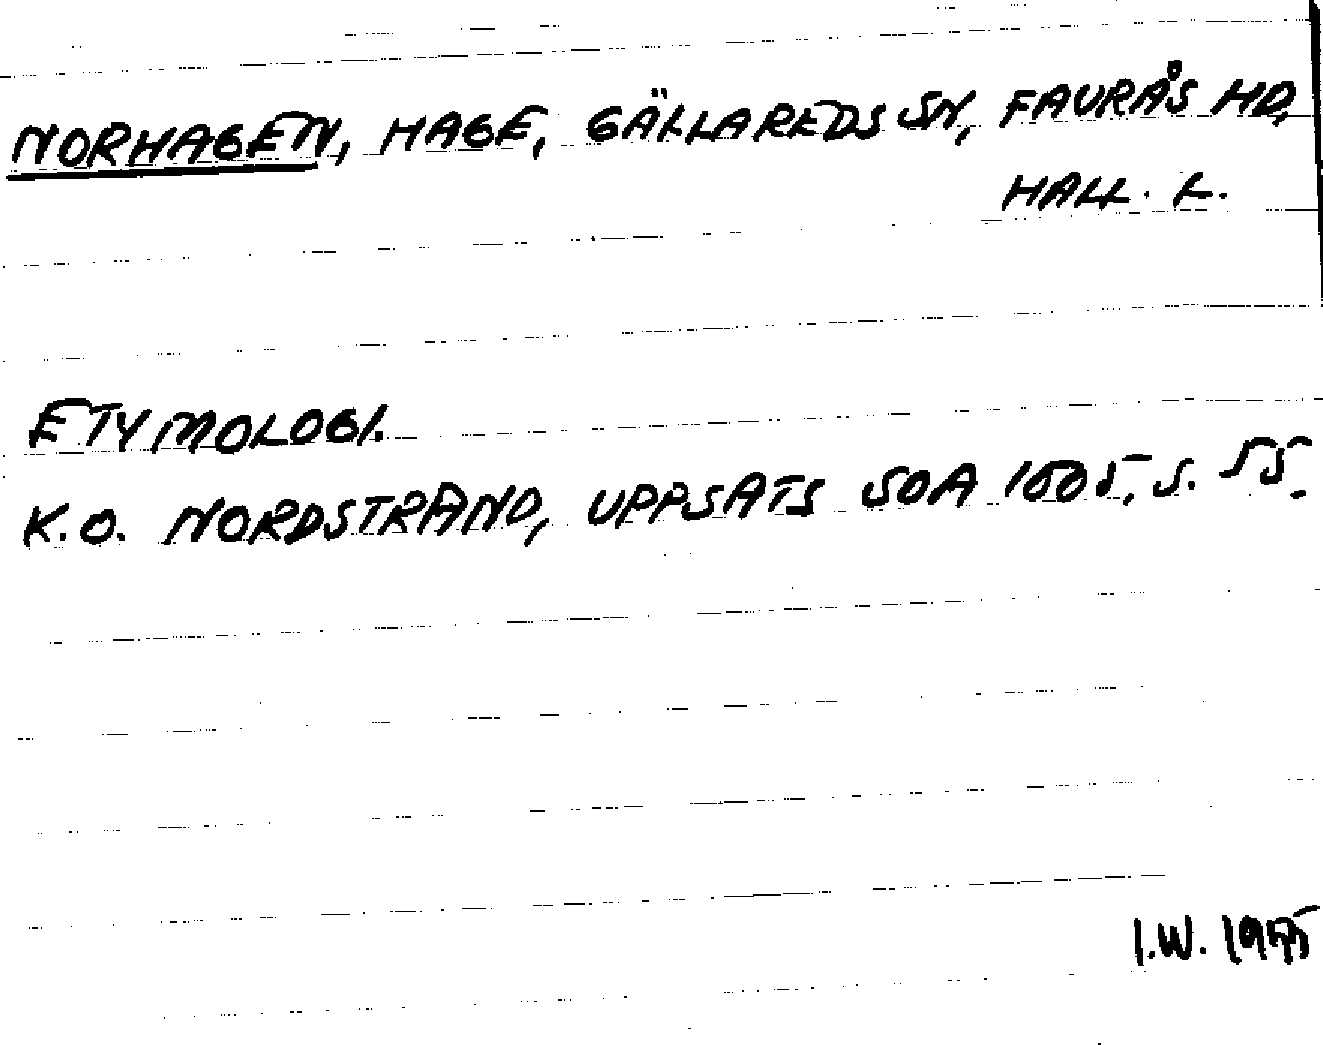 NORHAGEN, HAGE, GÄLLAREDS SN, FAURÅS HD,
HALL. L.
ETYMOLOGI.
K.O. NORDSTRAND, UPPSATS SOA 1005, S. 55.
I.W. 1975